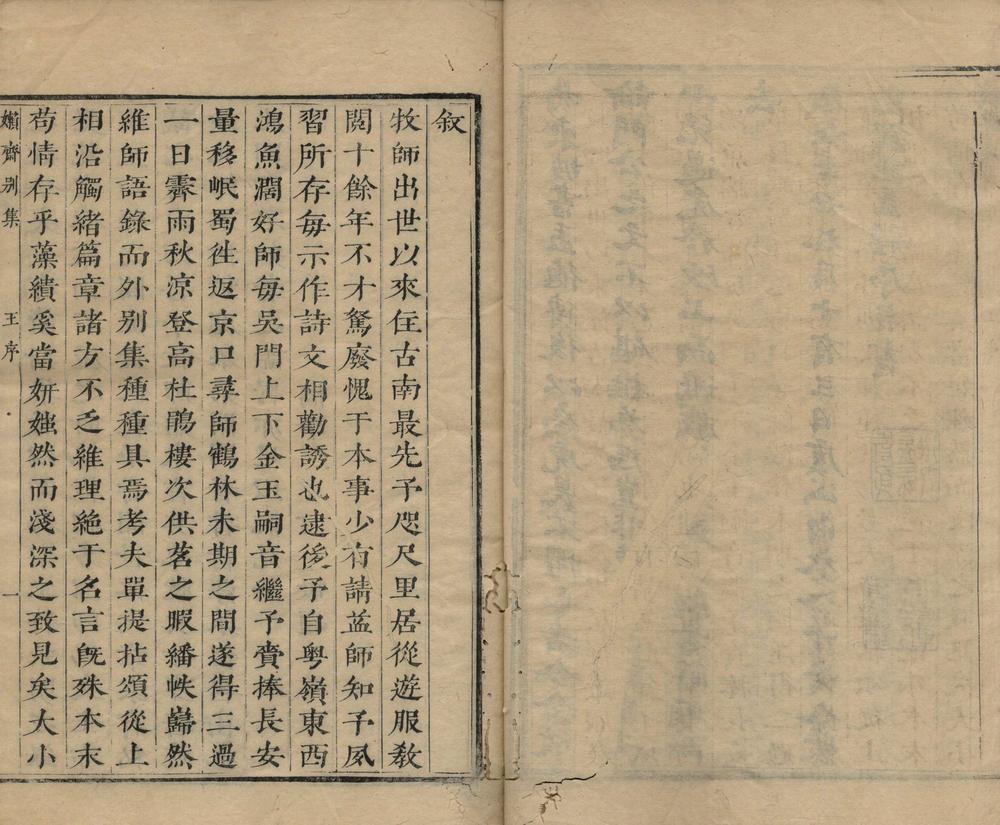 敘
牧師出世以來住古南最先予咫尺里居從遊服教
閱十餘年不才駑廢愧于本事少有請益師知予夙
習所存每示作詩文相勸誘也逮後予自粵嶺東西
鴻魚濶好師每吳門上下金玉嗣音繼予賫捧長安
量移岷蜀徃返京口尋師鶴林未期之間遂得三過
一日霽雨秋凉登高杜鵑樓次供茗之暇繙帙巋然
維師語錄而外别集種種具焉考夫單提拈頌從上
相沿觸緒篇章諸方不乏維理絶于名言旣殊本末
苟情存乎藻繢奚當妍媸然而淺深之致見矣大小
嬾齋别集
王序
一